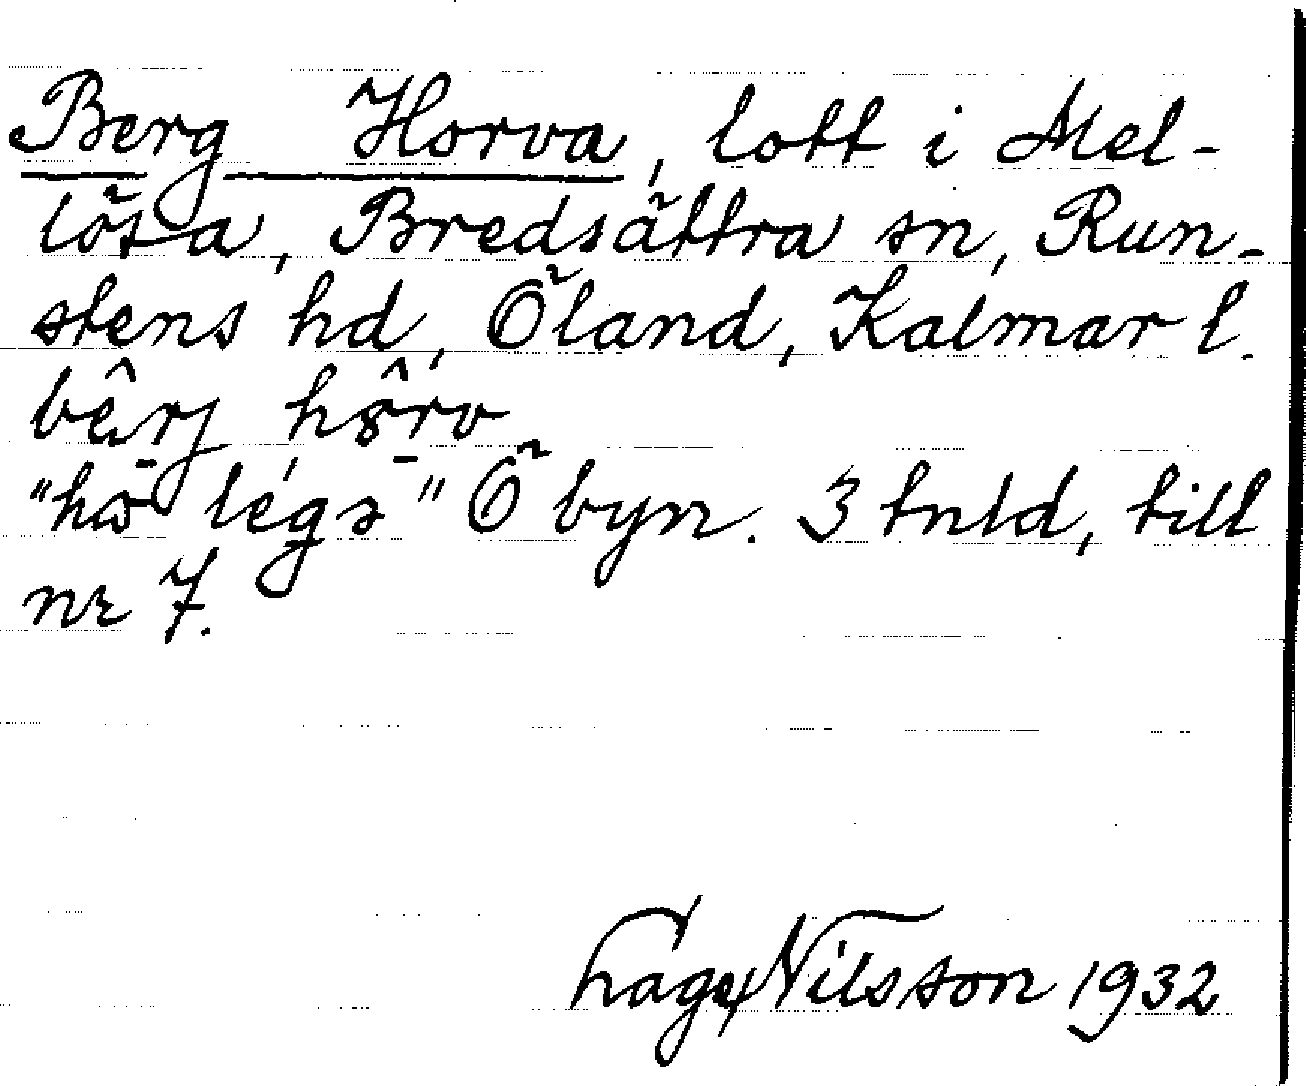 Berg Horva, lott i Mel-
lösa, Bredsättra sn, Run-
stens hd, Öland, Kalmar l.
bêrj hôrv
"hö légs" Ö byn. 3 tnld, till
nr 7.
Nilsson 1932